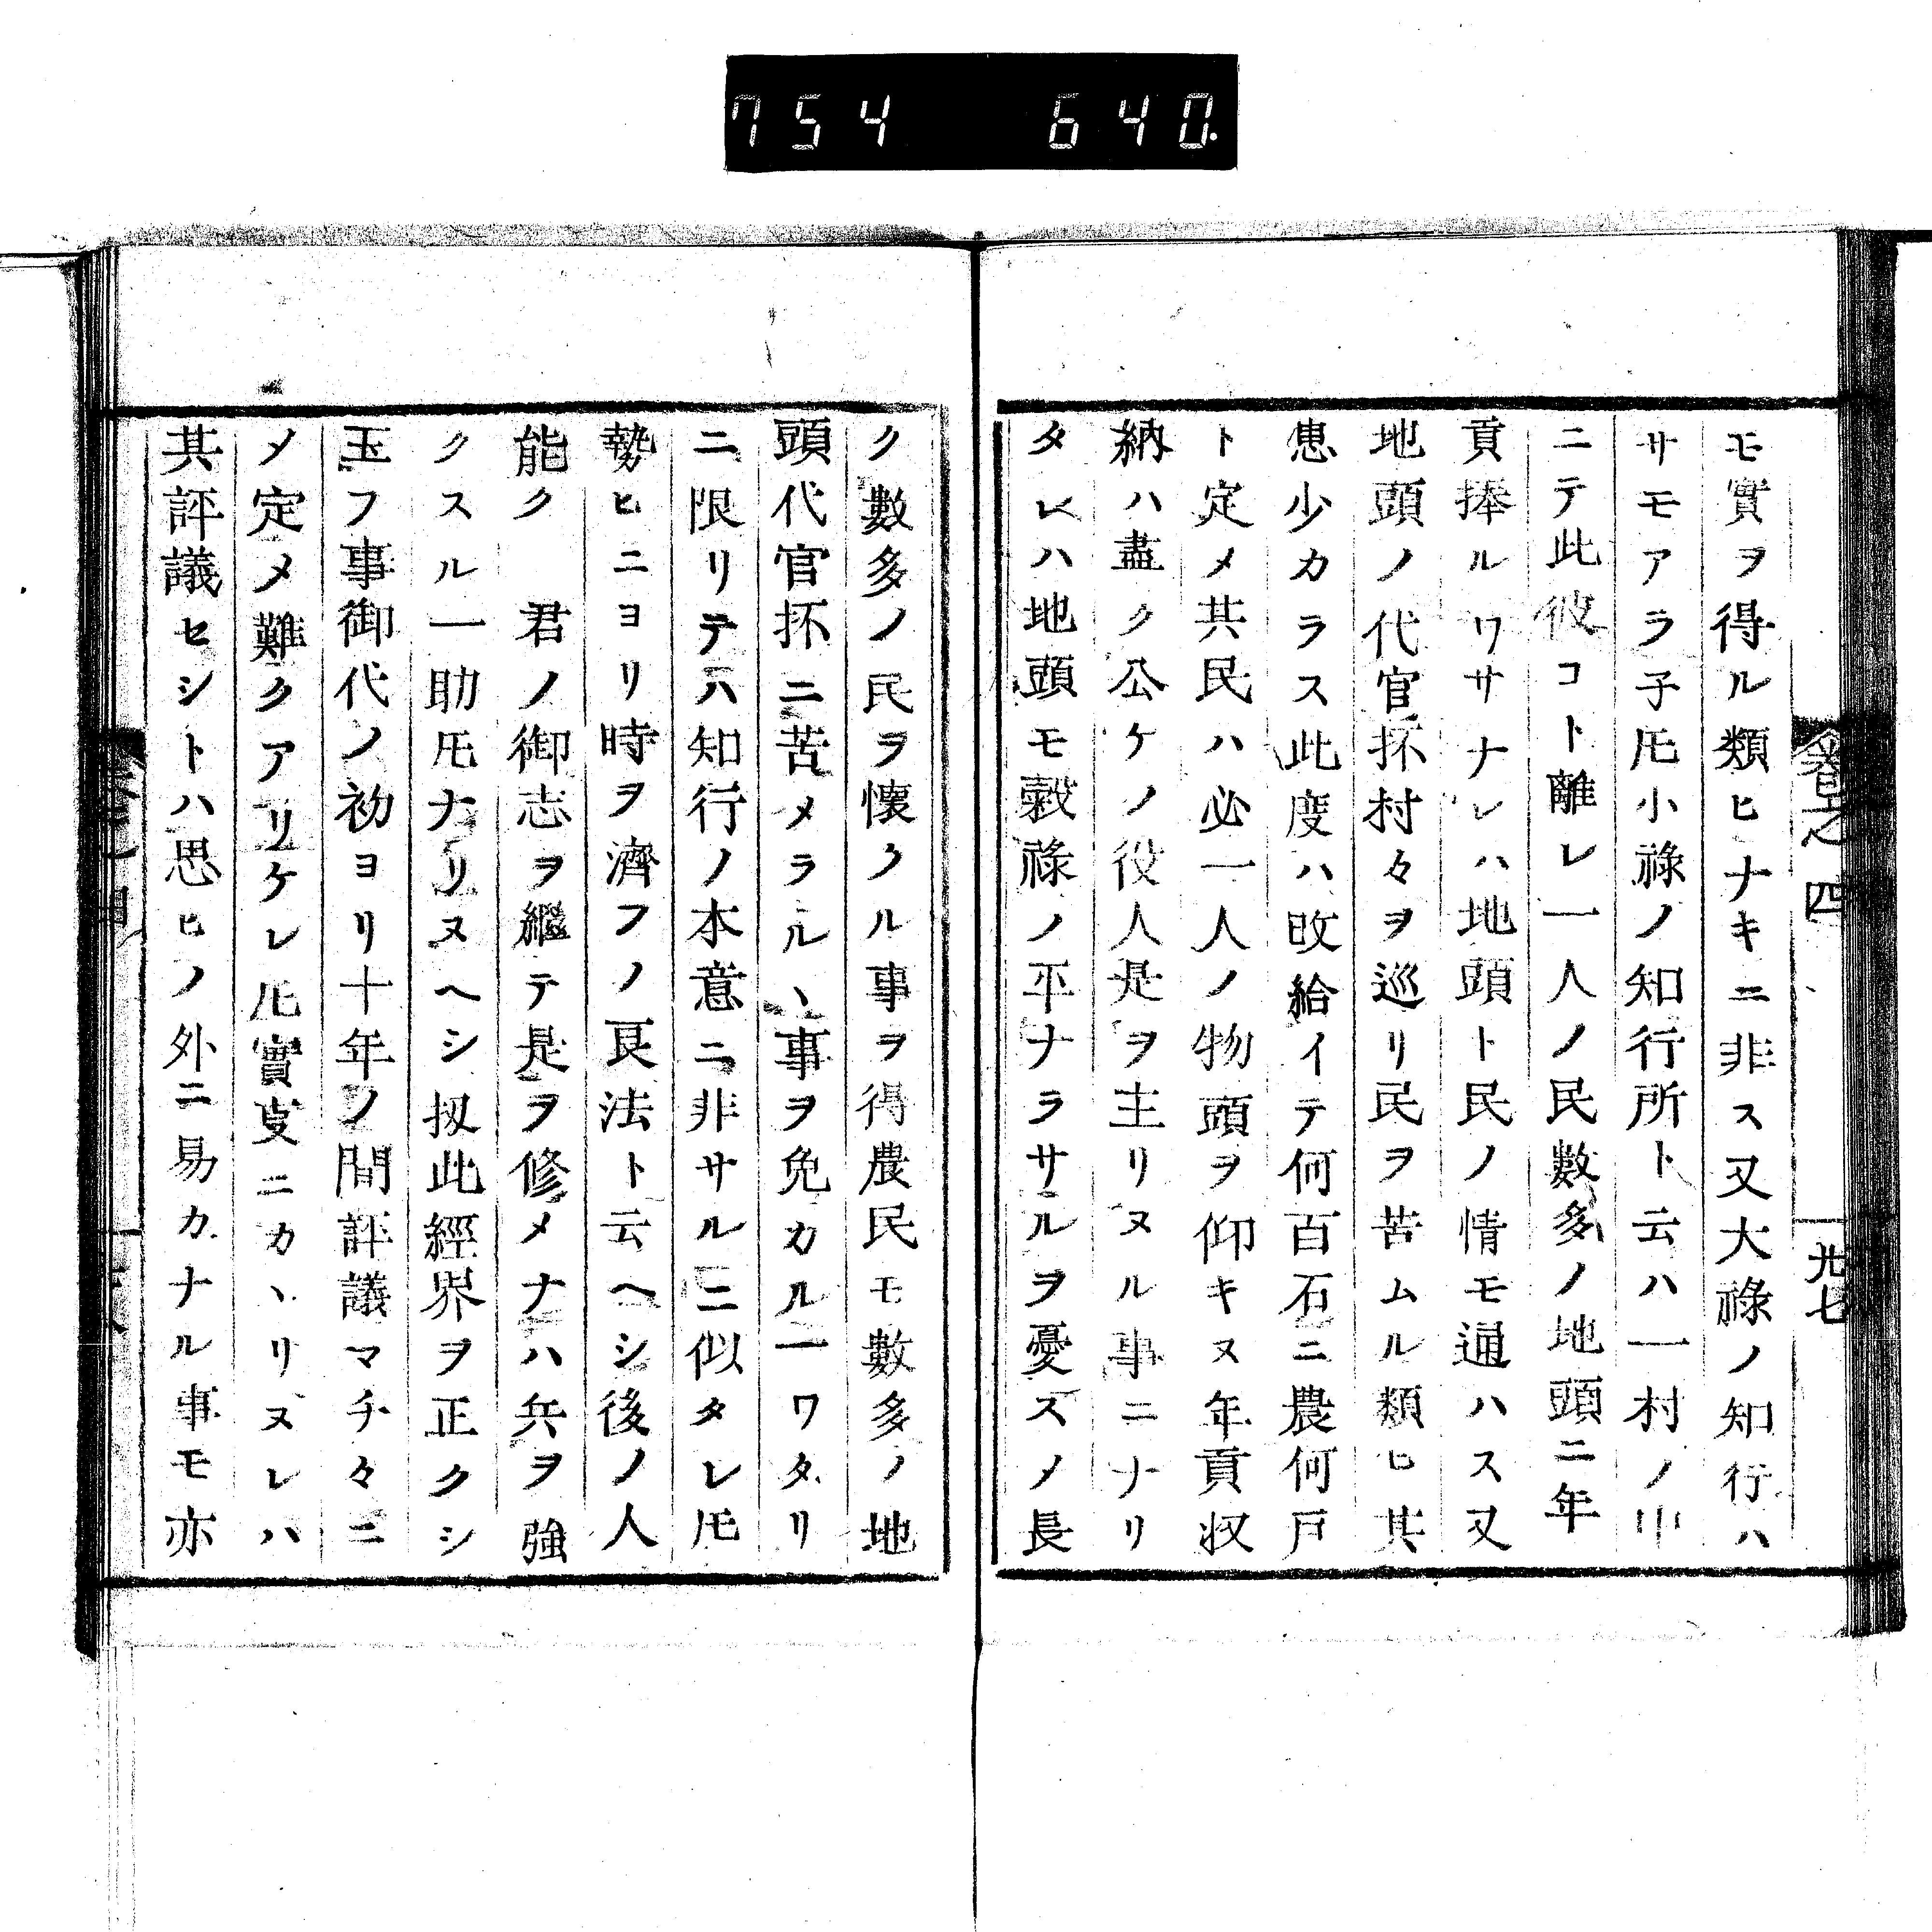 754 640.
卷之四
廿七
モ實ヲ得ル類ヒナキニ非ス又大祿ノ知行ハ
サモアラ子𪜈小祿ノ知行所ト云ハ一村ノ中
ニテ此彼コト離レ一人ノ民數多ノ地頭ニ年
貢捧ルワサナレハ地頭ト民ノ情モ通ハス又
地頭ノ代官抔村々ヲ巡リ民ヲ苦ムル類ヒ其
患少カラス此度ハ改給イテ何百石ニ農何戸
ト定メ其民ハ必一人ノ物頭ヲ仰キヌ年貢收
納ハ盡ク公ケノ役人是ヲ主リヌル事ニナリ
タレハ地頭モ穀祿ノ平ナラサルヲ憂スメ長
ク數多ノ民ヲ懷クル事ヲ得農民モ數多ノ地
頭代官抔ニ苦メラルヽ事ヲ免カル一ワタリ
ニ限リテハ知行ノ本意ニ非サルニ似タレ𪜈
勢ヒニヨリ時ヲ濟フノ良法ト云ヘシ後ノ人
能ク 君ノ御志ヲ繼テ是ヲ修メナハ兵ヲ強
クスル一助𪜈ナリヌヘシ扨此經界ヲ正クシ
玉フ事御代ノ初ヨリ十年ノ間評議マチ々ニ
メ定メ難クアリケレ𪜈實叓ニカヽリヌレハ
其評議セシトハ思ヒノ外ニ易カナル事モ亦